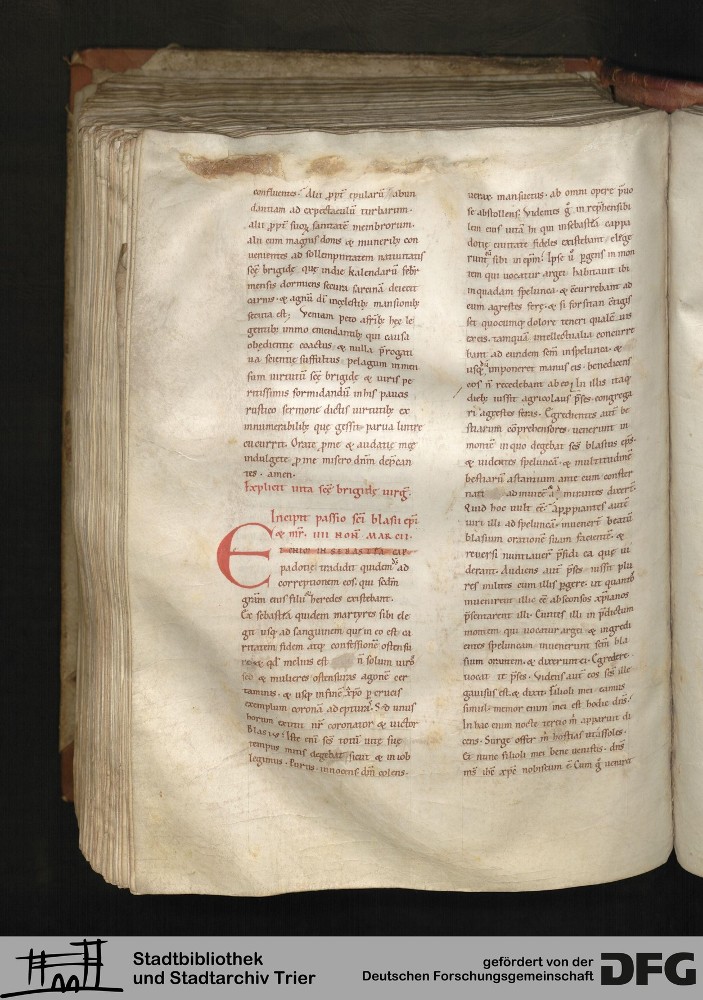 confluentes. Alii ꝓpt̄ epularū abun
dantiam ad expectaculū turbarum.
alii ꝓpt̄ suoꝝ sanitatē membrorum.
alii cum magnis donis & munerib; con
uenientes ad sollempnitatem natiuitatis
scę brigidę quę indie kalendarū febr̄
mensis dormiens secura sarcinā deiecit
carnis. & agnū dī incęlestib; mansionib;
secuta est; Veniam peto afrib; hęc le
gentib; immo emendantib; qui causa
obędientię coactus. & nulla p̄rogati
ua scientię suffultus. pelagum inmen
sum uirtutū scę brigidę & uiris pe
ritissimis formidandū inhis paucis
rustico sermone dictis uirtutib; ex
innumerabilib; quę gessit. parua lintre
cucurrit. Orate ꝓme & audatię męę
indulgete ꝓme misero dn̄m dep̄can
tes. amen.
Explicit uita scę brigidę uirḡ.
Incipit passio sc̄i blasii ep̄i
& mr̄. IIII NON̄ MARCII.
E
T ENIM IN SEBASTEA CAP
padotię tradidit quidem ds̄ ad
correptionem eos. qui scdm̄
gr̄am eius filii & heredes existebant.
Ex sebastea quidem martyres sibi ele
git usq; ad sanguinem quę in eo est ca
ritatem fidem atq; confessionē ostensu
ros & qd̄ melius est n̄ solum uiros
sed & mulieres ostensuras agonē cer
taminis. & usq; infinē xp̄o p̄ crucis
exemplum coronā adepturas. Sed unus
horum extitit nr̄ coronator & uictor
Blasius. Iste enī ses totū uitę suę
tempus mitis degebat sicut & in iob
legimus. Purus. innocens dm̄ colens.
uerax. mansuetus. ab omni opere p̄uo
se abstollens. Videntes g̊ in rep̄hensibi
lem eius uitā hi qui insebastea cappa
dotię ciuitate fideles existebant. elege
runt sibi in ep̄m. Ipse ū p̄gens in mon
tem qui uocatur argei habitauit ibi
inquadam spelunca. & c̄currebant ad
eum agrestes ferę. & si forsitan c̄tigis
set quocumq; dolore teneri qualē uis
ex eis. tamquā intellectualia concurre
bant ad eundem sem̄ inspelunca. &
usq; quo imponeret manus eis. benedicens
eos n̄ recedebant ab eo. In illis itaq;
dieb; iussit agricolaus p̄ses. congrega
ri agrestes feras. Egredientes aut̄ be
stiarum cōprehensores. uenerunt in
montē in quo degebat scs̄ blasius ep̄s.
& uidentes speluncā. & multitudinē
bestiarū astantium ante eum conster
nati ad inuicē mirantes dixer̄.
Quid hoc uult eē. Appropiantes aut̄
uiri illi ad speluncā. inuener̄ beatū
blasium orationē suam facientē. &
reuersi nuntiauer̄ p̄sidi ea quę ui
derant. Audiens aut̄ p̄ses. iussit plu
res milites cum illis p̄gere. ut quantos
inuenirent illic eē absconsos xp̄ianos
p̄sentarent illi. Euntes illi in p̄dictum
montem qui uocatur argei. & ingredi
entes speluncam inuenerunt scm̄ bla
sium orantem. & dixerunt ei. Egredere.
uocat te p̄ses. Videns aut̄ eos scs̄ ille
gauisus est. & dixit. Filioli mei eamus
simul. memor enim mei est hodie dn̄s.
In hac enim nocte tertio m̄ apparuit di
cens. Surge offer m̄ hostias ut assoles.
Et nunc filioli mei bene uenistis. dn̄s
ms̄ ih̄c xp̄c nobiscum ē. Cum g̊ uenirent
Stadtbibliothek
und Stadtarchiv Trier
gefördert von der
Deutschen Forschungsgemeinschaft
DFG